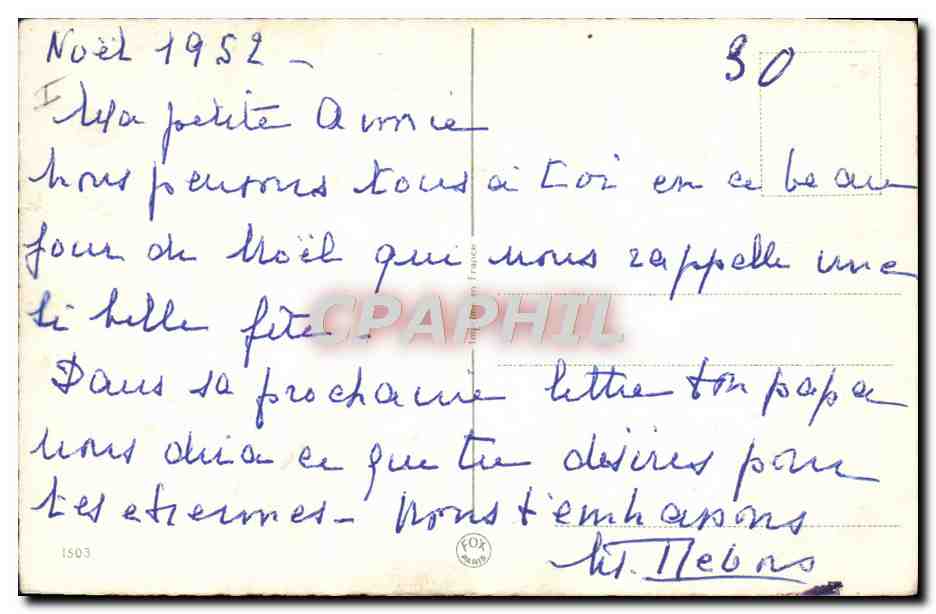 Noël 1952 -
30
Ma petite Annie
Nous pensons tous à toi en ce beau
jour de Noël qui nous rappelle une
si belle fête.
Dans sa prochaine lettre ton papa
nous dira ce que tu désires pour
tes etrennes - Nous t'embrassons
CPAPHIL
Imprimé en France
1503
FOX
PARIS